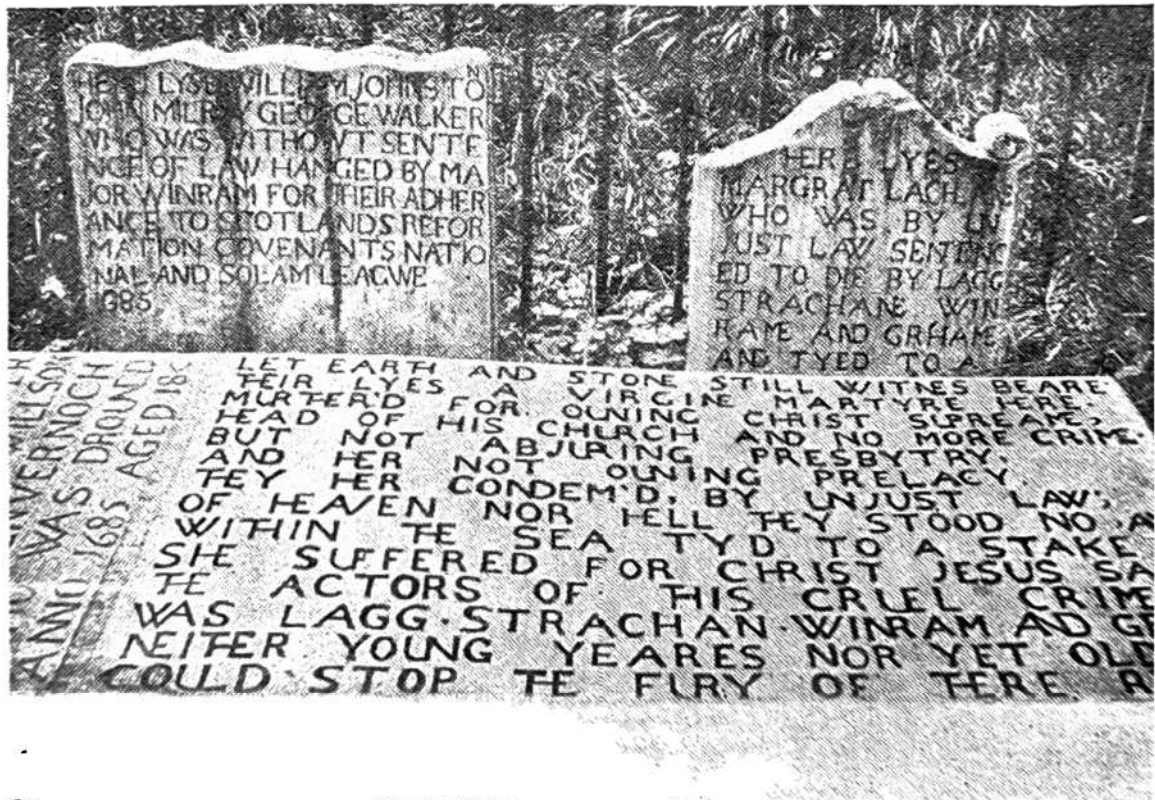 HERE LYSE WILLIAM JOHNSTO
N
JOHN MILROY GEORGE WALKER
WHO WAS WITHOUT SENTE
NCE OF LAW HANGED BY MA
JOR WINRAM FOR THEIR ADHER
ANCE TO SCOTLANDS REFOR
MATION COVENANTS NATIO
NAL AND SOLAM LEAGWE
1685
HERE LYES
MARGRAT LACHLAN
WHO WAS BY UN
JUST LAW SENTENC
ED TO DIE BY LAGG
STRACHANE WIN
RAME AND GRHAME
AND TYED TO A
LET EARTH AND STONE STILL WITNES BEARE
THEIR LYES A VIRGINE MARTYRE HERE.
MURTHER'D FOR OUNING CHRIST SUPREAME,
HEAD OF HIS CHURCH AND NO MORE CRIME.
BUT NOT ABJURING PRESBYTRY,
AND HER NOT OUNING PRELACY.
THEY HER CONDEM'D, BY UNJUST LAW;
OF HEAVEN NOR HELL THEY STOOD NO A
WITHIN THE SEA TYD TO A STAKE
SHE SUFFERED FOR CHRIST JESUS SA
THE ACTORS OF THIS CRUEL CRIME
WAS LAGG. STRACHAN. WINRAM AND GR
NEITHER YOUNG YEARES NOR YET OLD
COULD STOP THE FURY OF THERE R
WILLSON
INVERNOCH
WAS DROUND
ANNO 1685 AGED 18